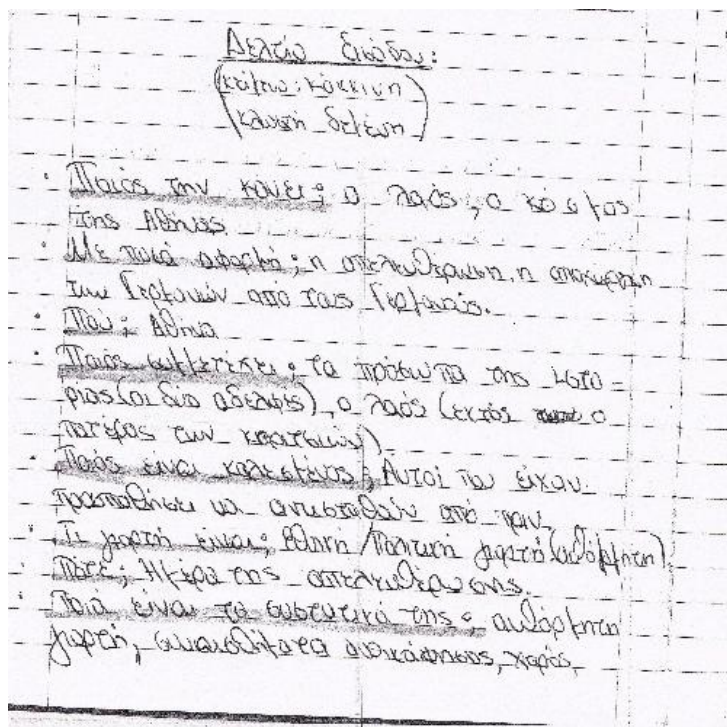 Δελτίο Εισόδου:
(κάρτα: κόκκινη
κλωστή δεμένη)
· Ποιός την κάνει; ο λαός, ο κόσμος
της Αθήνας
· Με ποιά αφορμή; η απελευθέρωση, η αποχώρηση
των Γερμανών από τους Γερμανούς.
· Πού; Αθήνα
· Ποιός συμμετέχει; τα πρόσωπα της ιστο-
ρίας (οι δυο αδελφές), ο λαός (εκτός ο
πατέρας των κοριτσιών)
· Ποιός είναι καλεσμένος; Αυτοί που είχαν
προσπαθήσει να αντισταθούν από πριν.
· Τι γιορτή είναι; Εθνική/Πολιτική γιορτή (αυθόρμητη)
· Πότε; Ημέρα της απελευθέρωσης.
· Ποιά είναι τα συστατικά της; αυθόρμητη
γιορτή, συναισθήματα χαράς,